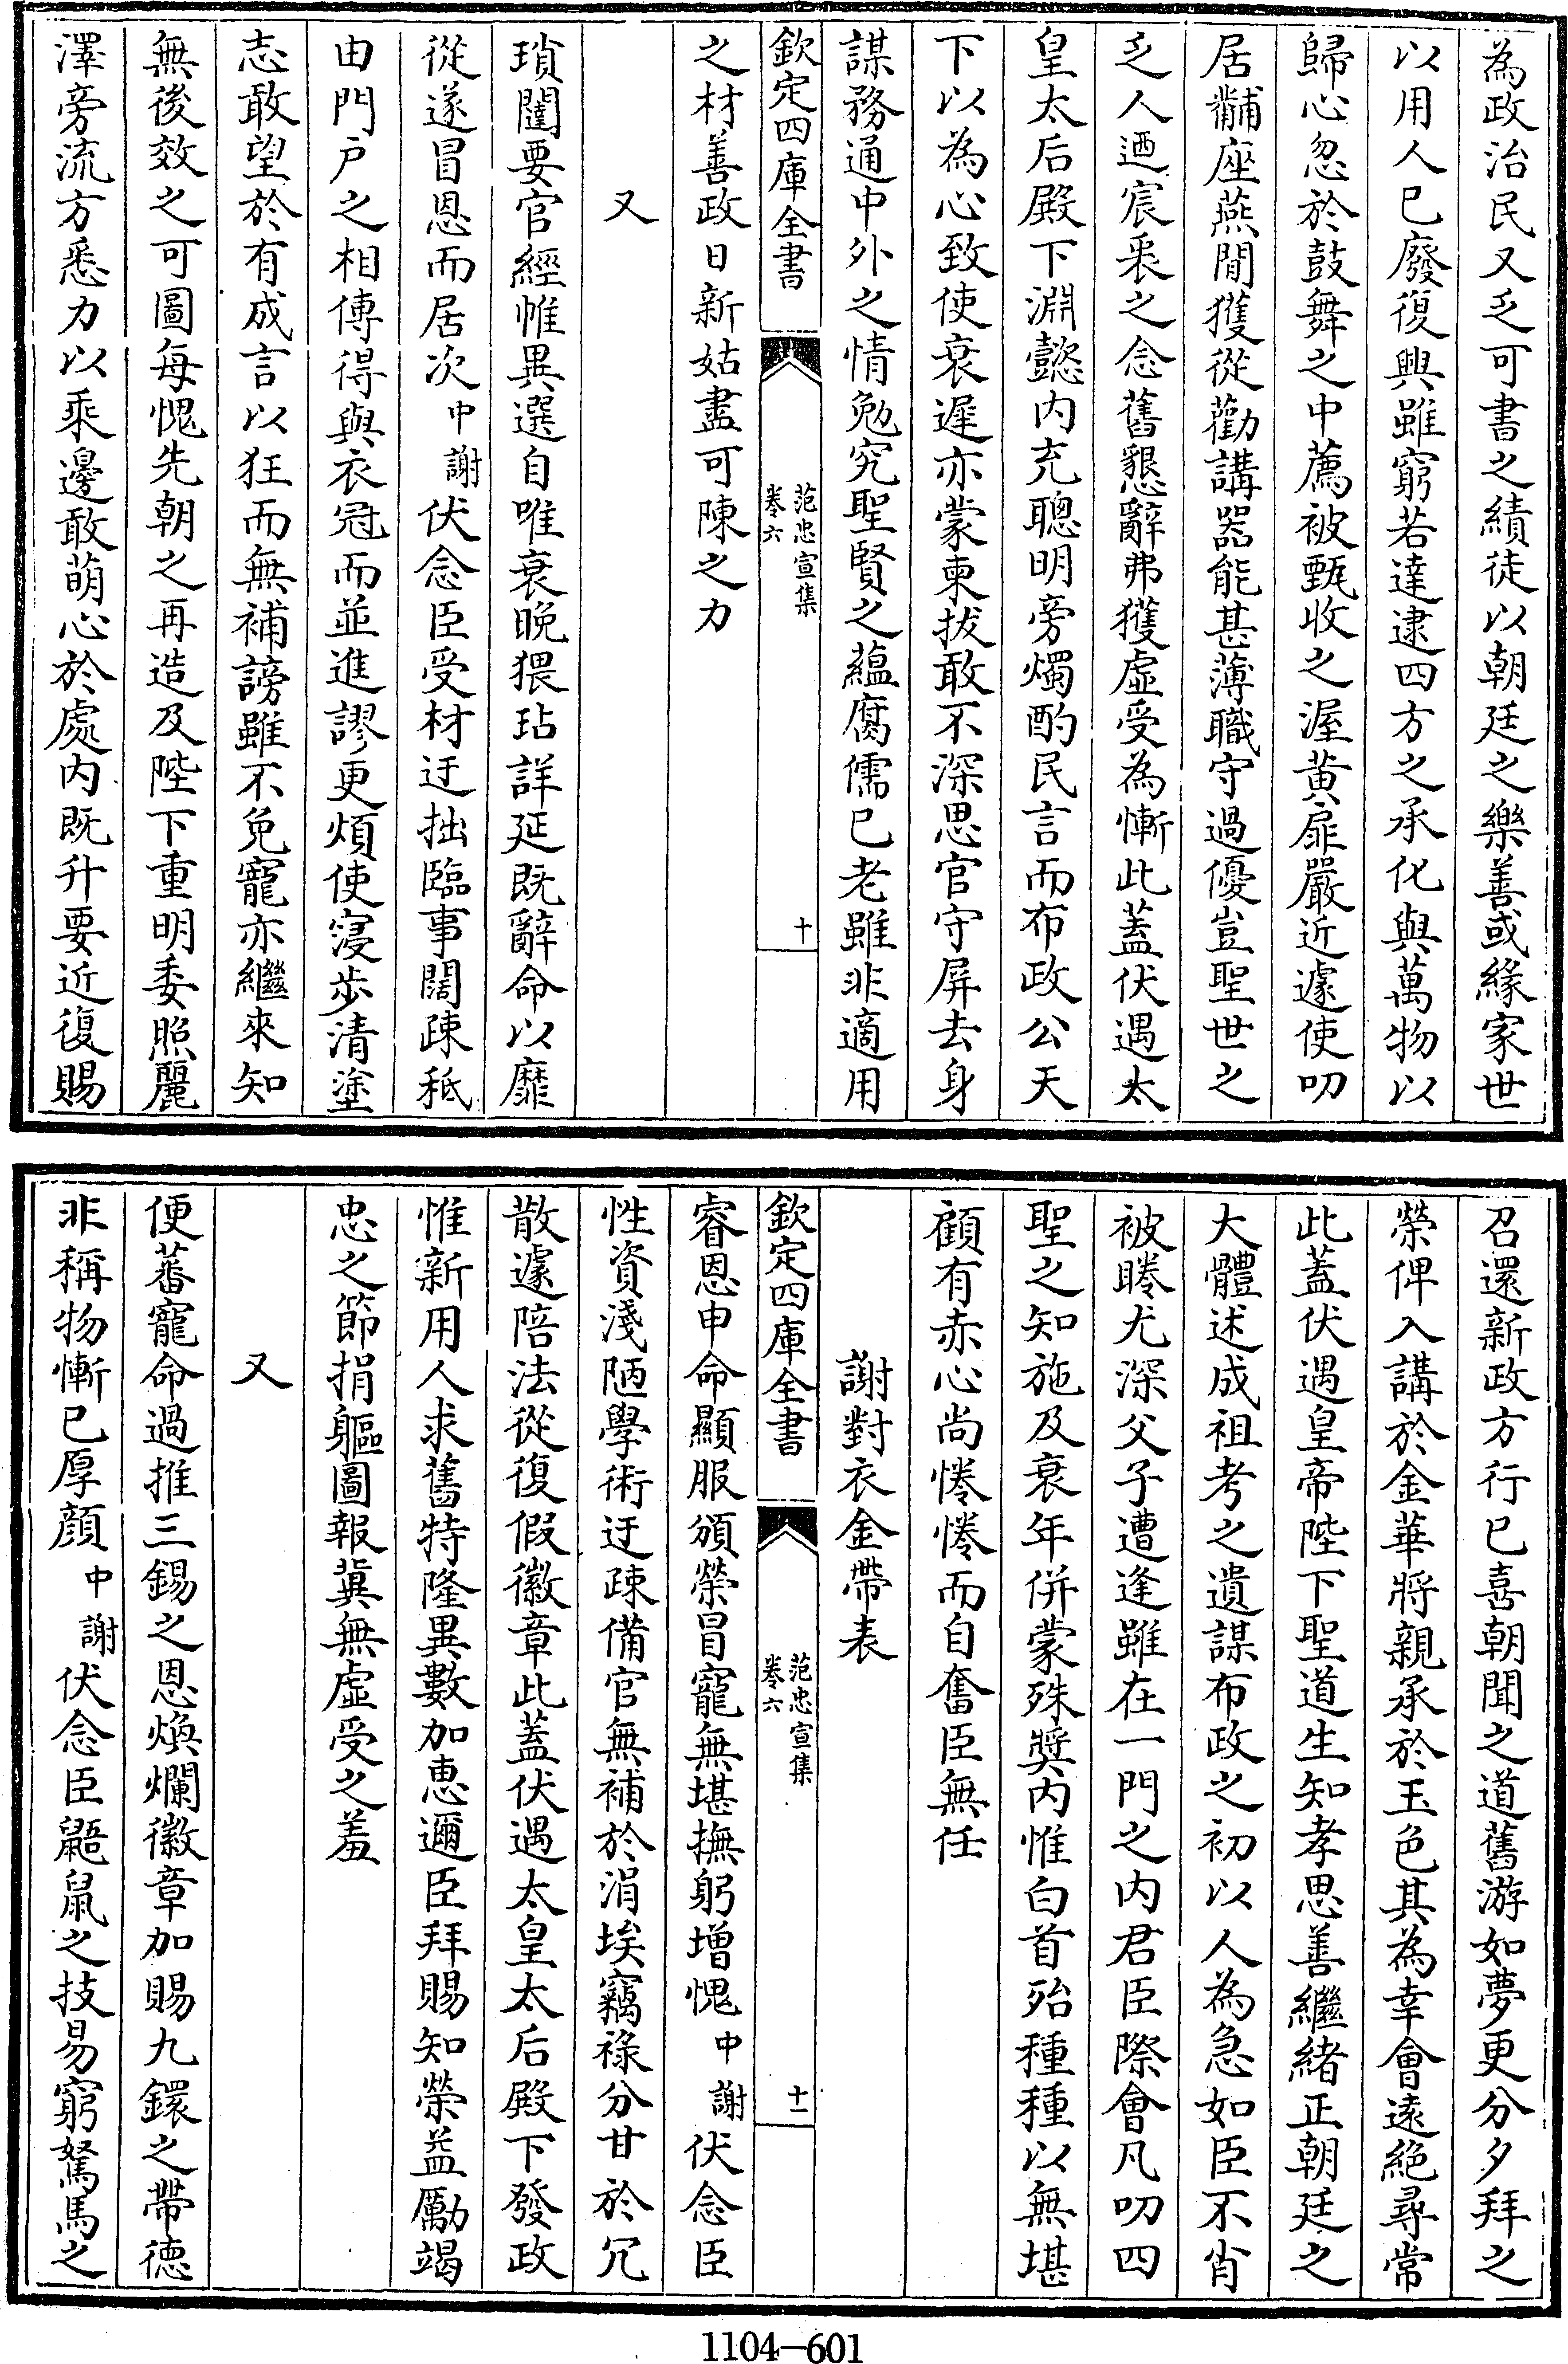 為政治民又乏可書之績徒以朝廷之樂善或緣家世
以用人已廢復興雖窮若達逮四方之承化與萬物以
歸心忽於鼓舞之中薦被甄收之渥黄扉嚴近遽使叨
居黼座燕閒獲從勸講器能甚薄職守過優豈聖世之
乏人廼宸衷之念舊懇辭弗獲虚受為慚此蓋伏遇太
皇太后殿下淵懿内充聰明旁燭酌民言而布政公天
下以為心致使衰遲亦蒙柬拔敢不深思官守屏去身
謀務通中外之情勉究聖賢之藴腐儒已老雖非適用
欽定四庫全書
范忠宣集
卷六
十
之材善政日新姑盡可陳之力
又
瑣闥要官經帷異選自唯衰晚猥玷詳延既辭命以靡
從遂冒恩而居次中謝伏念臣受材迂拙臨事闊疎秪
由門戶之相傳得與衣冠而並進謬更煩使寖步清塗
志敢望於有成言以狂而無補謗雖不免寵亦繼來知
無後效之可圖每愧先朝之再造及陛下重明委照麗
澤旁流方悉力以乘邊敢萌心於處内既升要近復賜
召還新政方行已喜朝聞之道舊游如夢更分夕拜之
榮俾入講於金華將親承於玉色其為幸會遠絶尋常
此蓋伏遇皇帝陛下聖道生知孝思善繼緒正朝廷之
大體述成祖考之遺謀布政之初以人為急如臣不肖
被睠尤深父子遭逢雖在一門之内君臣際會凡叨四
聖之知施及衰年併蒙殊奬内惟白首殆種種以無堪
顧有赤心尚惓惓而自奮臣無任
謝對衣金帶表
欽定四庫全書
范忠宣集
卷六
十一
睿恩申命顯服頒榮冒寵無堪撫躬增愧中謝伏念臣
性資淺陋學術迂疎備官無補於涓埃竊禄分甘於冗
散遽陪法從復假徽章此蓋伏遇太皇太后殿下發政
惟新用人求舊特隆異數加惠邇臣拜賜知榮益勵竭
忠之節捐軀圖報冀無虚受之羞
又
便蕃寵命過推三錫之恩煥爛徽章加賜九鐶之帶德
非稱物慚已厚顔中謝伏念臣鼯鼠之技易窮駑馬之
1104-601